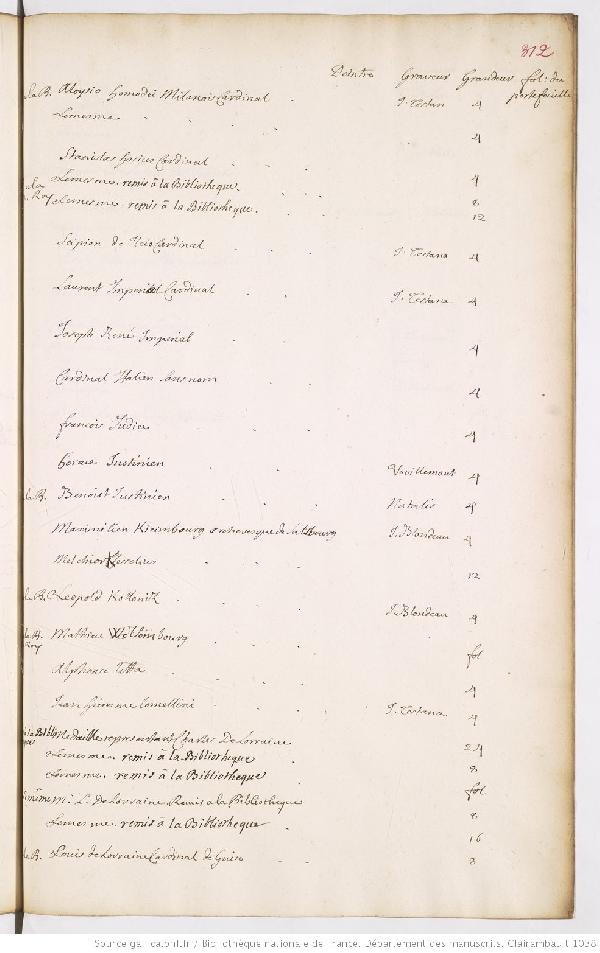 312
Peintre Graveur Grandeur fol. du portefeuille
la B. Aloysio homodei Milanois Cardinal J. Testan 4
Lemesme 4
Stanislas hosius Cardinal 4
Lemesme. remis à la Bibliotheque 8
Roy Lemesme. remis à la Bibliotheque. 12
Scipion de Cardinal J. Testana 4
Laurent Imperial Cardinal J. Testana 4
Joseph René Imperial 4
Cardinal Italien sans nom 4
francois Iudice 4
horace Iustinien Vouillemont 4
la B. Benoist Iustinien Natalis 4
Maximilien Kieimbourg archevesque de saltzbourg J. Blondeau 4
Melchior Klesselius 12
la B. Leopold Kollonitz J. Blondeau 4
la B. Roy Mathieu fol
Alphonse Litta 4
Jean hierosme Lomellini J. Testana 4
Medaille representant Charles De Lorraine 24
Lemesme remis à la Bibliotheque 8
Lemesme. remis à la Bibliotheque fol.
L. De Lorraine Remis a la Bibliotheque 8
Lemesme. remis à la Bibliotheque 16
la B. Louis de Lorraine Cardinal de Guise 8
Source gallica.bnf.fr / Bibliothèque nationale de France. Département des manuscrits. Clairambault 1038